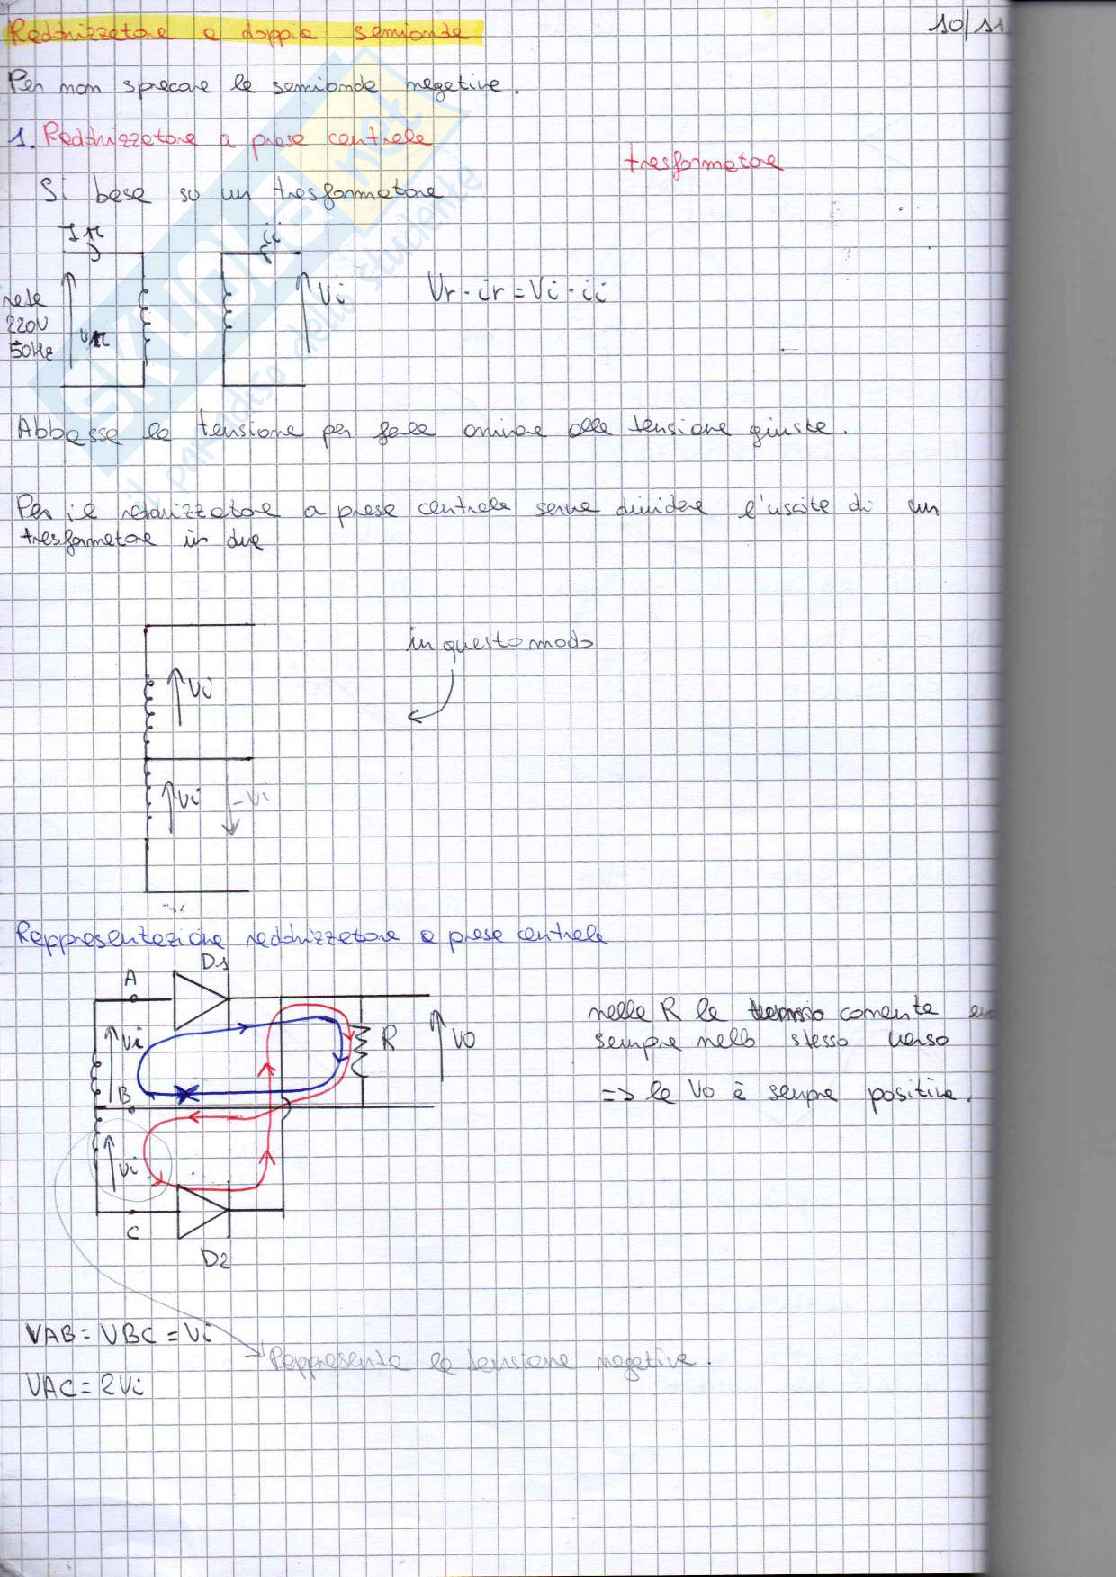 Raddrizzatore a doppia semionda
10/11
Per non sprecare le semionde negative.
1. Raddrizzatore a presa centrale
trasformatore
Si basa su un trasformatore
Ir
ii
rete
220V
50Hz
Vr
Vi
Vr · ir = Vi · ii
Abbassa la tensione per farla arrivare alla tensione giusta.
Per il raddrizzatore a presa centrale serve dividere l'uscita di un
trasformatore in due
in questo modo
Vi
Vi
-Vi
Rappresentazione raddrizzatore a presa centrale
D1
A
Vi
R
Vo
B
Vi
C
D2
nella R la corrente
sempre nello stesso verso
=> la Vo è sempre positiva.
VAB = VBC = Vi
Rappresenta la tensione negativa.
VAC = 2Vi
SKUOLA.net
il paradiso dello studente